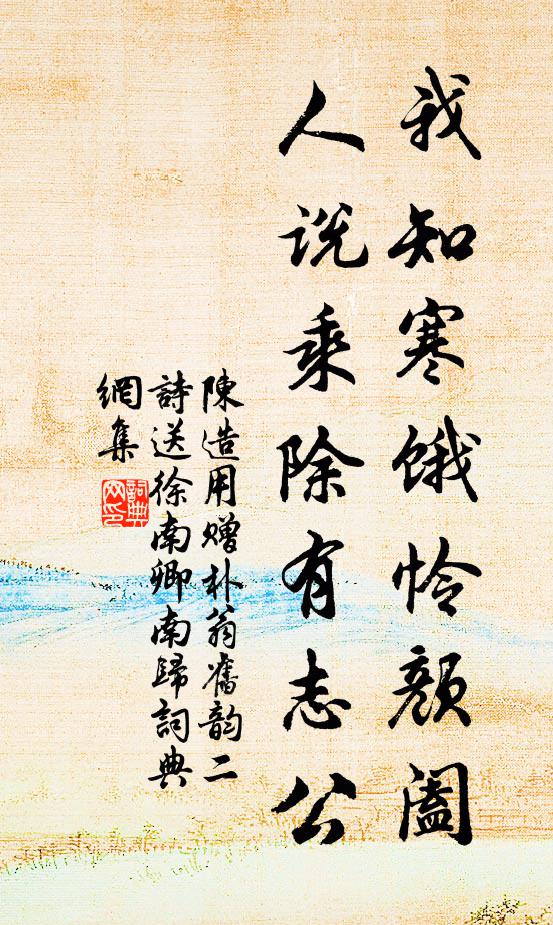 我知寒饿怜颜阖
人说乘除有志公
陳造用赠朴翁舊韵二
詩送徐南卿南歸詞典
網集
詞典
网印